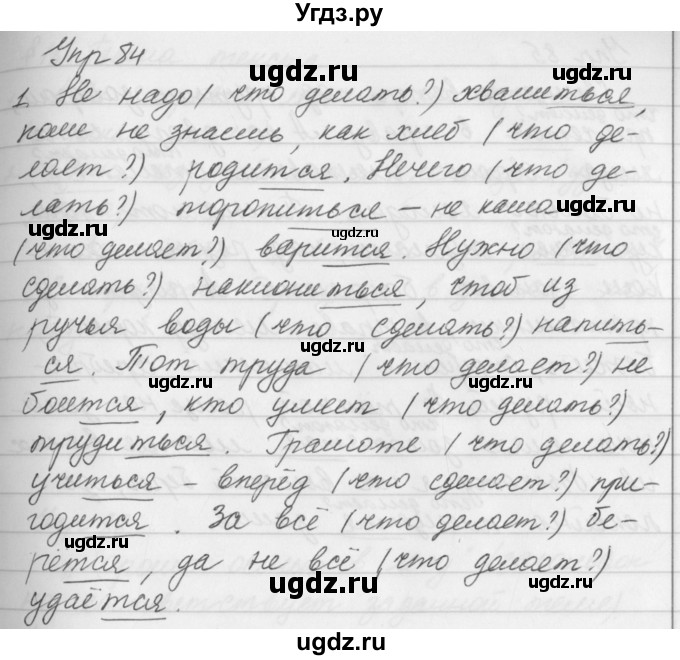 Угдз.ру
Упр 84
ugdz.ru
ugdz.ru
1. Не надо (что делать?) хвалиться,
коли не знаешь, как хлеб (что де-
ugdz.ru
ugdz.ru
лает?) родится. Нечего (что де-
лать?) торопиться – не каша
ugdz.ru
ugdz.ru
(что делает?) варится. Нужно (что
сделать?) наклониться, чтоб из
ugdz.ru
ugdz.ru
ручья воды (что сделать?) напить-
ugdz.ru
ся. Тот труда (что делает?) не
боится, кто умеет (что делать?)
ugdz.ru
ugdz.ru
трудиться. Грамоте (что делать?)
учиться – вперёд (что сделает?) при-
ugdz.ru
годится. За всё (что делает?) бе-
ugdz.ru
рётся, да не всё (что делает?)
ugdz.ru
ugdz.ru
удаётся.
ugdz.ru